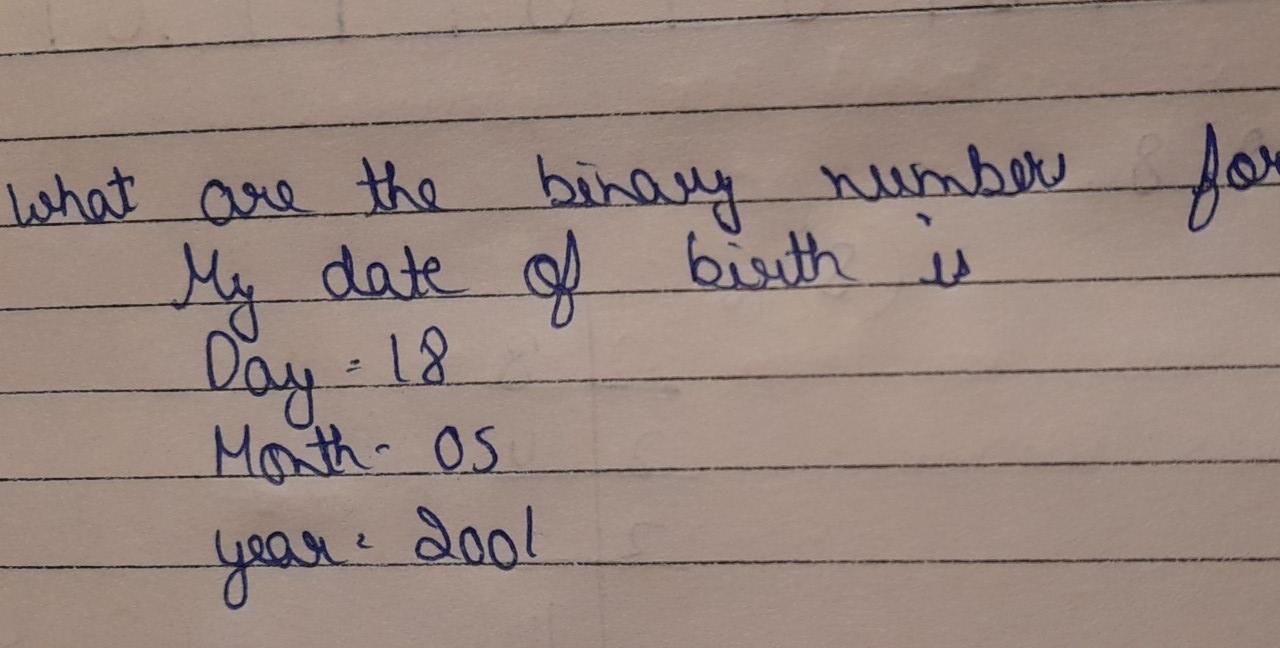 What are the binary number for
My date of birth is
Day = 18
Month - 05
year = 2001